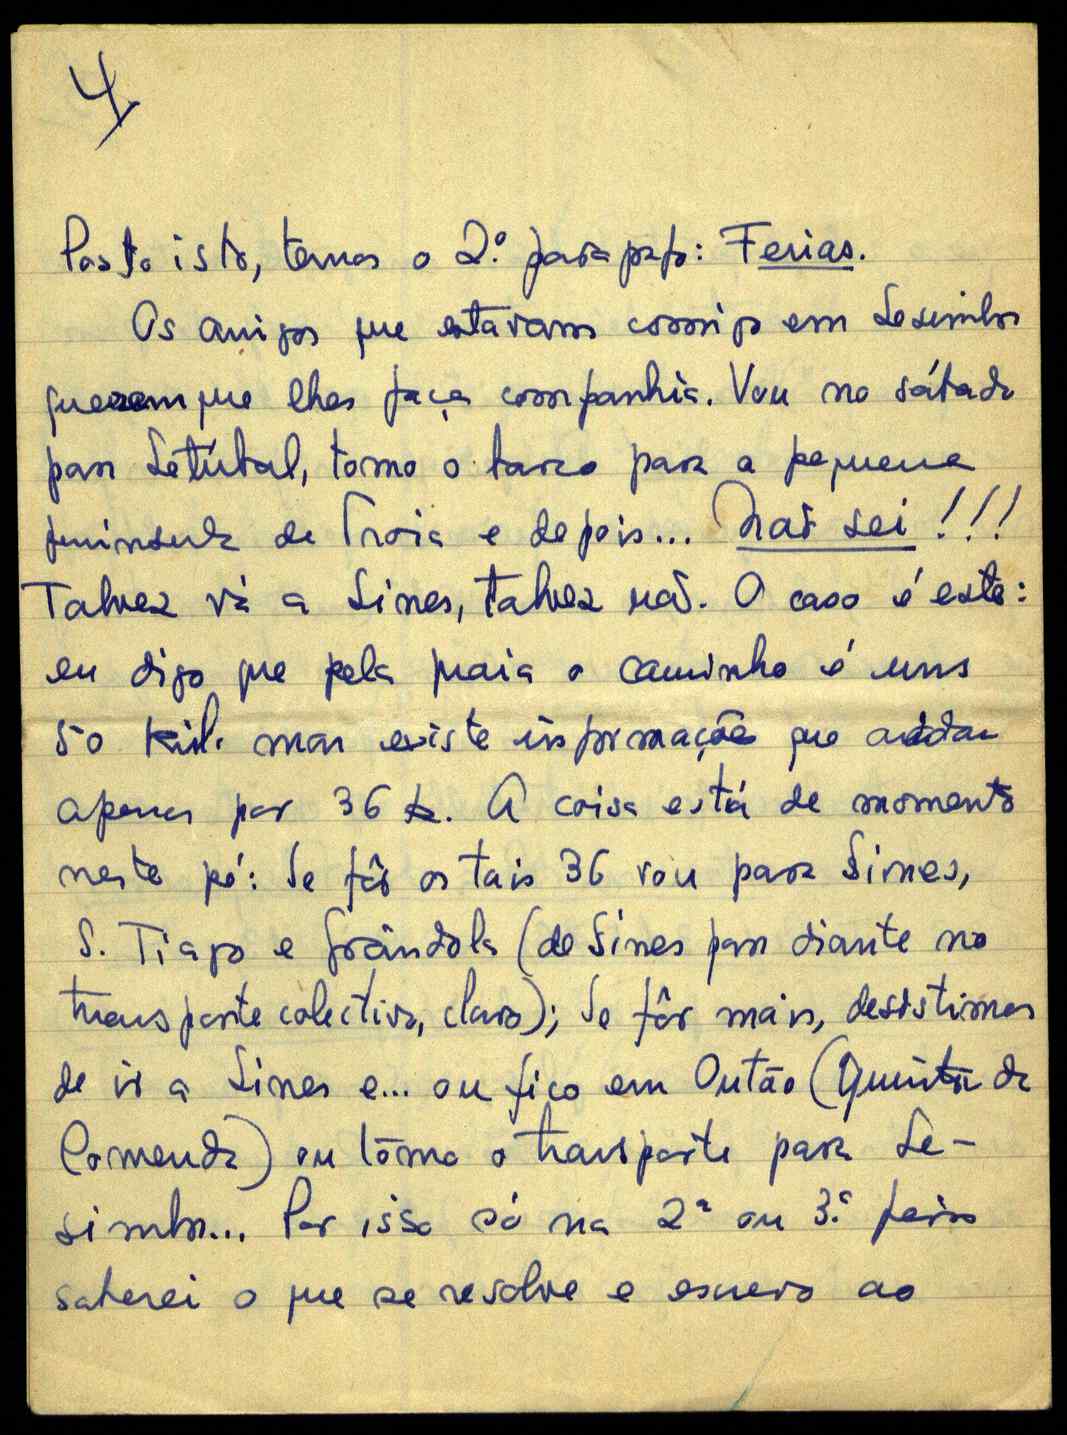 4
Posto isto, temos o 2.º paragrafo: Ferias.
Os amigos que estavam comigo em Sesimbra
querem que lhes faça companhia. Vou no sábado
para Setúbal, tomo o barco para a pequena
peninsula de Troia e depois... Não sei!!!
Talvez vá a Sines, talvez não. O caso é este:
eu digo que pela praia o caminho é uns
50 kil. mas existe informações que andam
apenas por 36 k. A coisa está de momento
neste pé: Se fôr os tais 36 vou para Sines,
S. Tiago e Grândola (de Sines para diante no
transporte colectivo, claro); Se fôr mais, desistimos
de ir a Sines e... ou fico em Outão (Quinta da
Comenda) ou tomo o transporte para Se-
simbra... Por isso só na 2ª ou 3.ª feira
saberei o que se resolve e escrevo ao